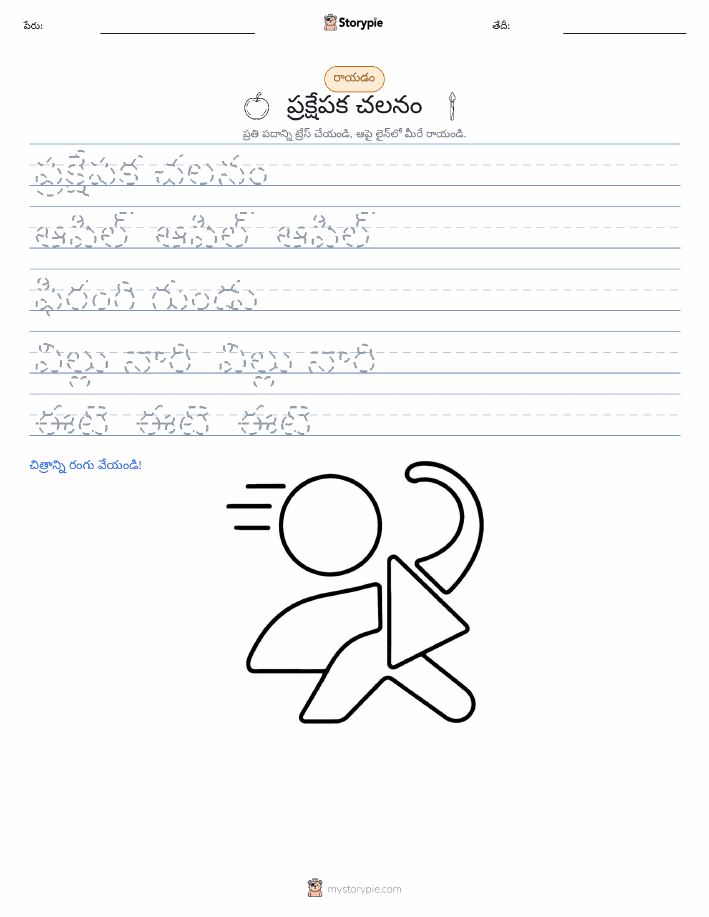 పేరు:
Storypie
తేదీ:
రాయడం
ప్రక్షేపక చలనం
ప్రతి పదాన్ని ట్రేస్ చేయండి, ఆపై లైన్‌లో మీరే రాయండి.
ప్రక్షేపక చలనం
ఆపిల్ ఆపిల్ ఆపిల్
ఫిరంగి గుండు
విల్లు నారి విల్లు నారి
చిత్రాన్ని రంగు వేయండి!
mystorypie.com